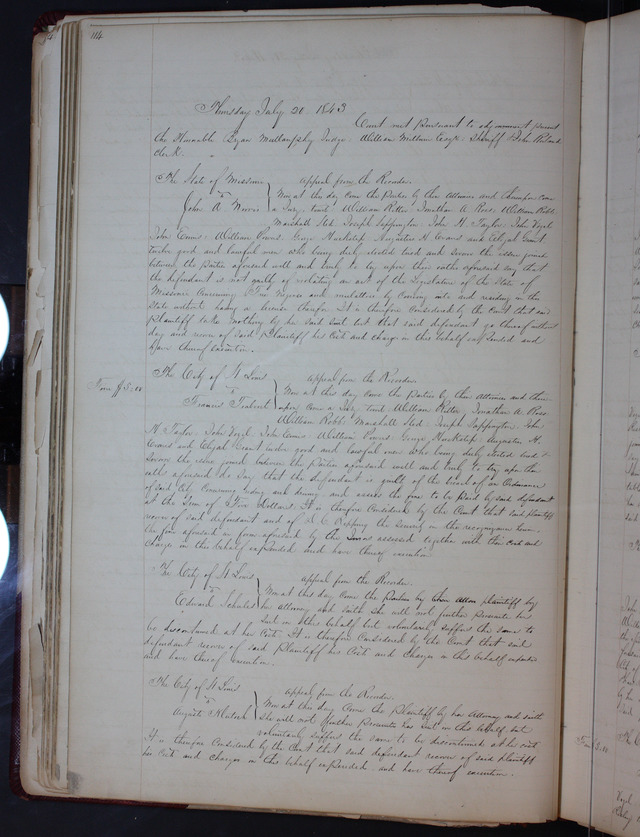 114
Thursday July 20 1843
Court met pursuant to adjournment present
the Honorable Bryan Mullanphy Judge. William Milburn Esqr. Sheriff & John Ruland
Clerk.
The State of Missouri Appeal from the Recorder.
vs Now at this day come the Parties by their Attornies and thereupon come
John A a Jury, towit William Ritter Jonathan A. Rose, William Robb,
Marshall Sted, Joseph Sappington, John H. Taylor, John Vogel
John Evans, William Powers, George Augustus H. Evans and Elijah Grant
twelve good and lawful men who being duly elected tried and sworn the issue joined
between the Parties aforesaid well and truly to try upon their oaths aforesaid say that
the defendant is not guilty of violating an act of the Legislature of the State of
Missouri Concerning Free Negroes and mulattoes by Coming into and residing in this
State without having a license therefor. It is therefore Considered by the Court that said
Plaintiff take nothing by her said suit but that said defendant go thereof without
day and recover of said Plaintiff his Cost and charges in this behalf expended and
have thereof execution.
The City of St Louis Appeal from the Recorder.
Fine $5.00 vs Now at this day come the Parties by their Attornies and there
Francis upon Come a Jury towit William Ritter, Jonathan A. Rose
William Robb, Marshall Sted, Joseph Sappington, John
H. Taylor, John Vogel, John Evans, William Powers, George Augustus H.
Evans and Elijah Grant twelve good and lawful men who being duly elected tried &
Sworn the issue joined between the Parties aforesaid well and truly to try upon their
oaths aforesaid do say that the defendant is guilty of the breach of an Ordinance
of said City Concerning riding and driving and assess the fine to be paid by said defendant
at the Sum of Five Dollars. It is therefore Considered by the Court that said plaintiff
recover of said defendant and of the Security in the recognizance herein
the fine aforesaid in form aforesaid by the Jurors assessed together with the cost and
charges in this behalf expended and have thereof execution
The City of St Louis Appeal from the Recorder.
vs Now at this day come the Parties by their attos plaintiff by
Edward Schultz her Attorney and saith she will not further prosecute her
Suit in this behalf but voluntarily suffers the same to
be discontinued at her Costs. It is therefore Considered by the Court that said
defendant recover of said Plaintiff his Costs and Charges in this behalf expended
and have thereof execution.
The City of St Louis Appeal from the Recorder.
vs Now at this day Come the Plaintiff by her Attorney and saith
August She will not further Prosecute her Suit in this behalf but
voluntarily suffers the same to be discontinued at her cost
It is therefore Considered by the Court that said defendant recover of said plaintiff
his Costs and charges in this behalf expended and have thereof execution.